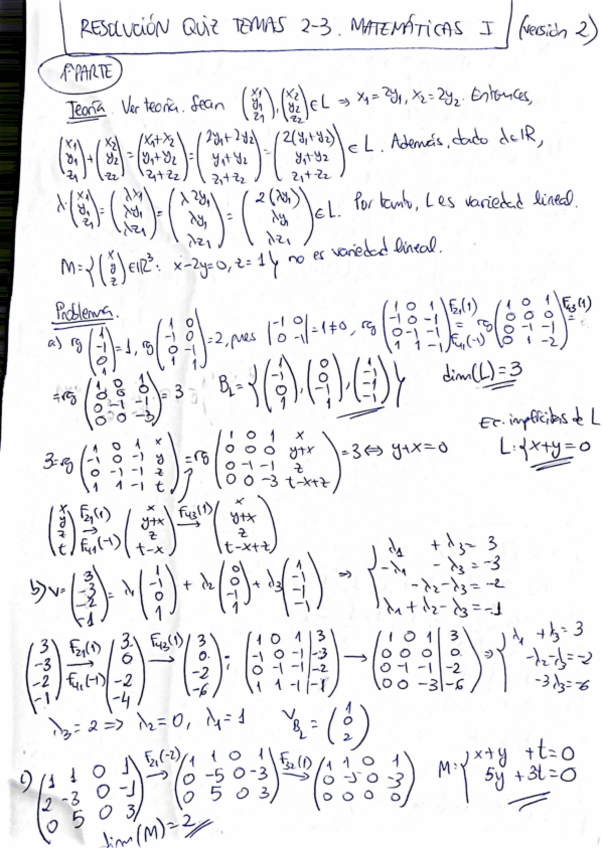 RESOLUCIÓN QUIZ TEMAS 2-3. MATEMÁTICAS I (versión 2)
1ª PARTE
Teoría. Ver teoría. Sean (x₁ y₁ z₁), (x₂ y₂ z₂) ∈ L ⇒ x₁ = 2y₁, x₂ = 2y₂. Entonces,
(x₁ y₁ z₁) + (x₂ y₂ z₂) = (x₁+x₂ y₁+y₂ z₁+z₂) = (2y₁+2y₂ y₁+y₂ z₁+z₂) = (2(y₁+y₂) y₁+y₂ z₁+z₂) ∈ L. Además, dado λ∈ℝ,
λ·(x₁ y₁ z₁) = (λx₁ λy₁ λz₁) = (λ2y₁ λy₁ λz₁) = (2(λy₁) λy₁ λz₁) ∈ L. Por tanto, L es variedad lineal.
M = {(x y z) ∈ ℝ³: x-2y=0, z=1} no es variedad lineal.
Problema.
a) rg (1 -1 0 1) = 1, rg (1 0, -1 0, 0 -1, 1 1) = 2, pues |-1 0, 0 -1| = 1≠0, rg (1 0 1, -1 0 -1, 0 -1 -1, 1 1 -1) F₂₁(1) F₄₁(-1) = rg (1 0 1, 0 0 0, 0 -1 -1, 0 1 -2) F₄₃(1) =
= rg (1 0 1, 0 0 0, 0 -1 -1, 0 0 -3) = 3 B_L = {(1 -1 0 1), (0 0 -1 1), (1 -1 -1 -1)} dim(L) = 3
Ec. implícitas de L
3 = rg (1 0 1 x, -1 0 -1 y, 0 -1 -1 z, 1 1 -1 t) = rg (1 0 1 x, 0 0 0 y+x, 0 -1 -1 z, 0 0 -3 t-x+z) = 3 ⇔ y+x=0 L: {x+y=0
(x y z t) F₂₁(1) F₄₁(-1) → (x y+x z t-x) F₄₃(1) → (x y+x z t-x+z)
b) v = (3 -3 -2 -1) = λ₁ (1 -1 0 1) + λ₂ (0 0 -1 1) + λ₃ (1 -1 -1 -1) ⇒ { λ₁ + λ₃ = 3
-λ₁ - λ₃ = -3
-λ₂ - λ₃ = -2
λ₁ + λ₂ - λ₃ = -1
(3 -3 -2 -1) F₂₁(1) F₄₁(-1) → (3 0 -2 -4) F₄₃(1) → (3 0 -2 -6); (1 0 1 | 3, -1 0 -1 | -3, 0 -1 -1 | -2, 1 1 -1 | -1) → (1 0 1 | 3, 0 0 0 | 0, 0 -1 -1 | -2, 0 0 -3 | -6) ⇒ { λ₁ + λ₃ = 3
-λ₂ - λ₃ = -2
-3λ₃ = -6
λ₃ = 2 ⇒ λ₂ = 0, λ₁ = 1 V_{B_L} = (1 0 2)
c) (1 1 0 1, 2 -3 0 -1, 0 5 0 3) F₂₁(-2) → (1 1 0 1, 0 -5 0 -3, 0 5 0 3) F₃₂(1) → (1 1 0 1, 0 -5 0 -3, 0 0 0 0) M: { x+y +t=0
5y + 3t=0
dim(M) = 2